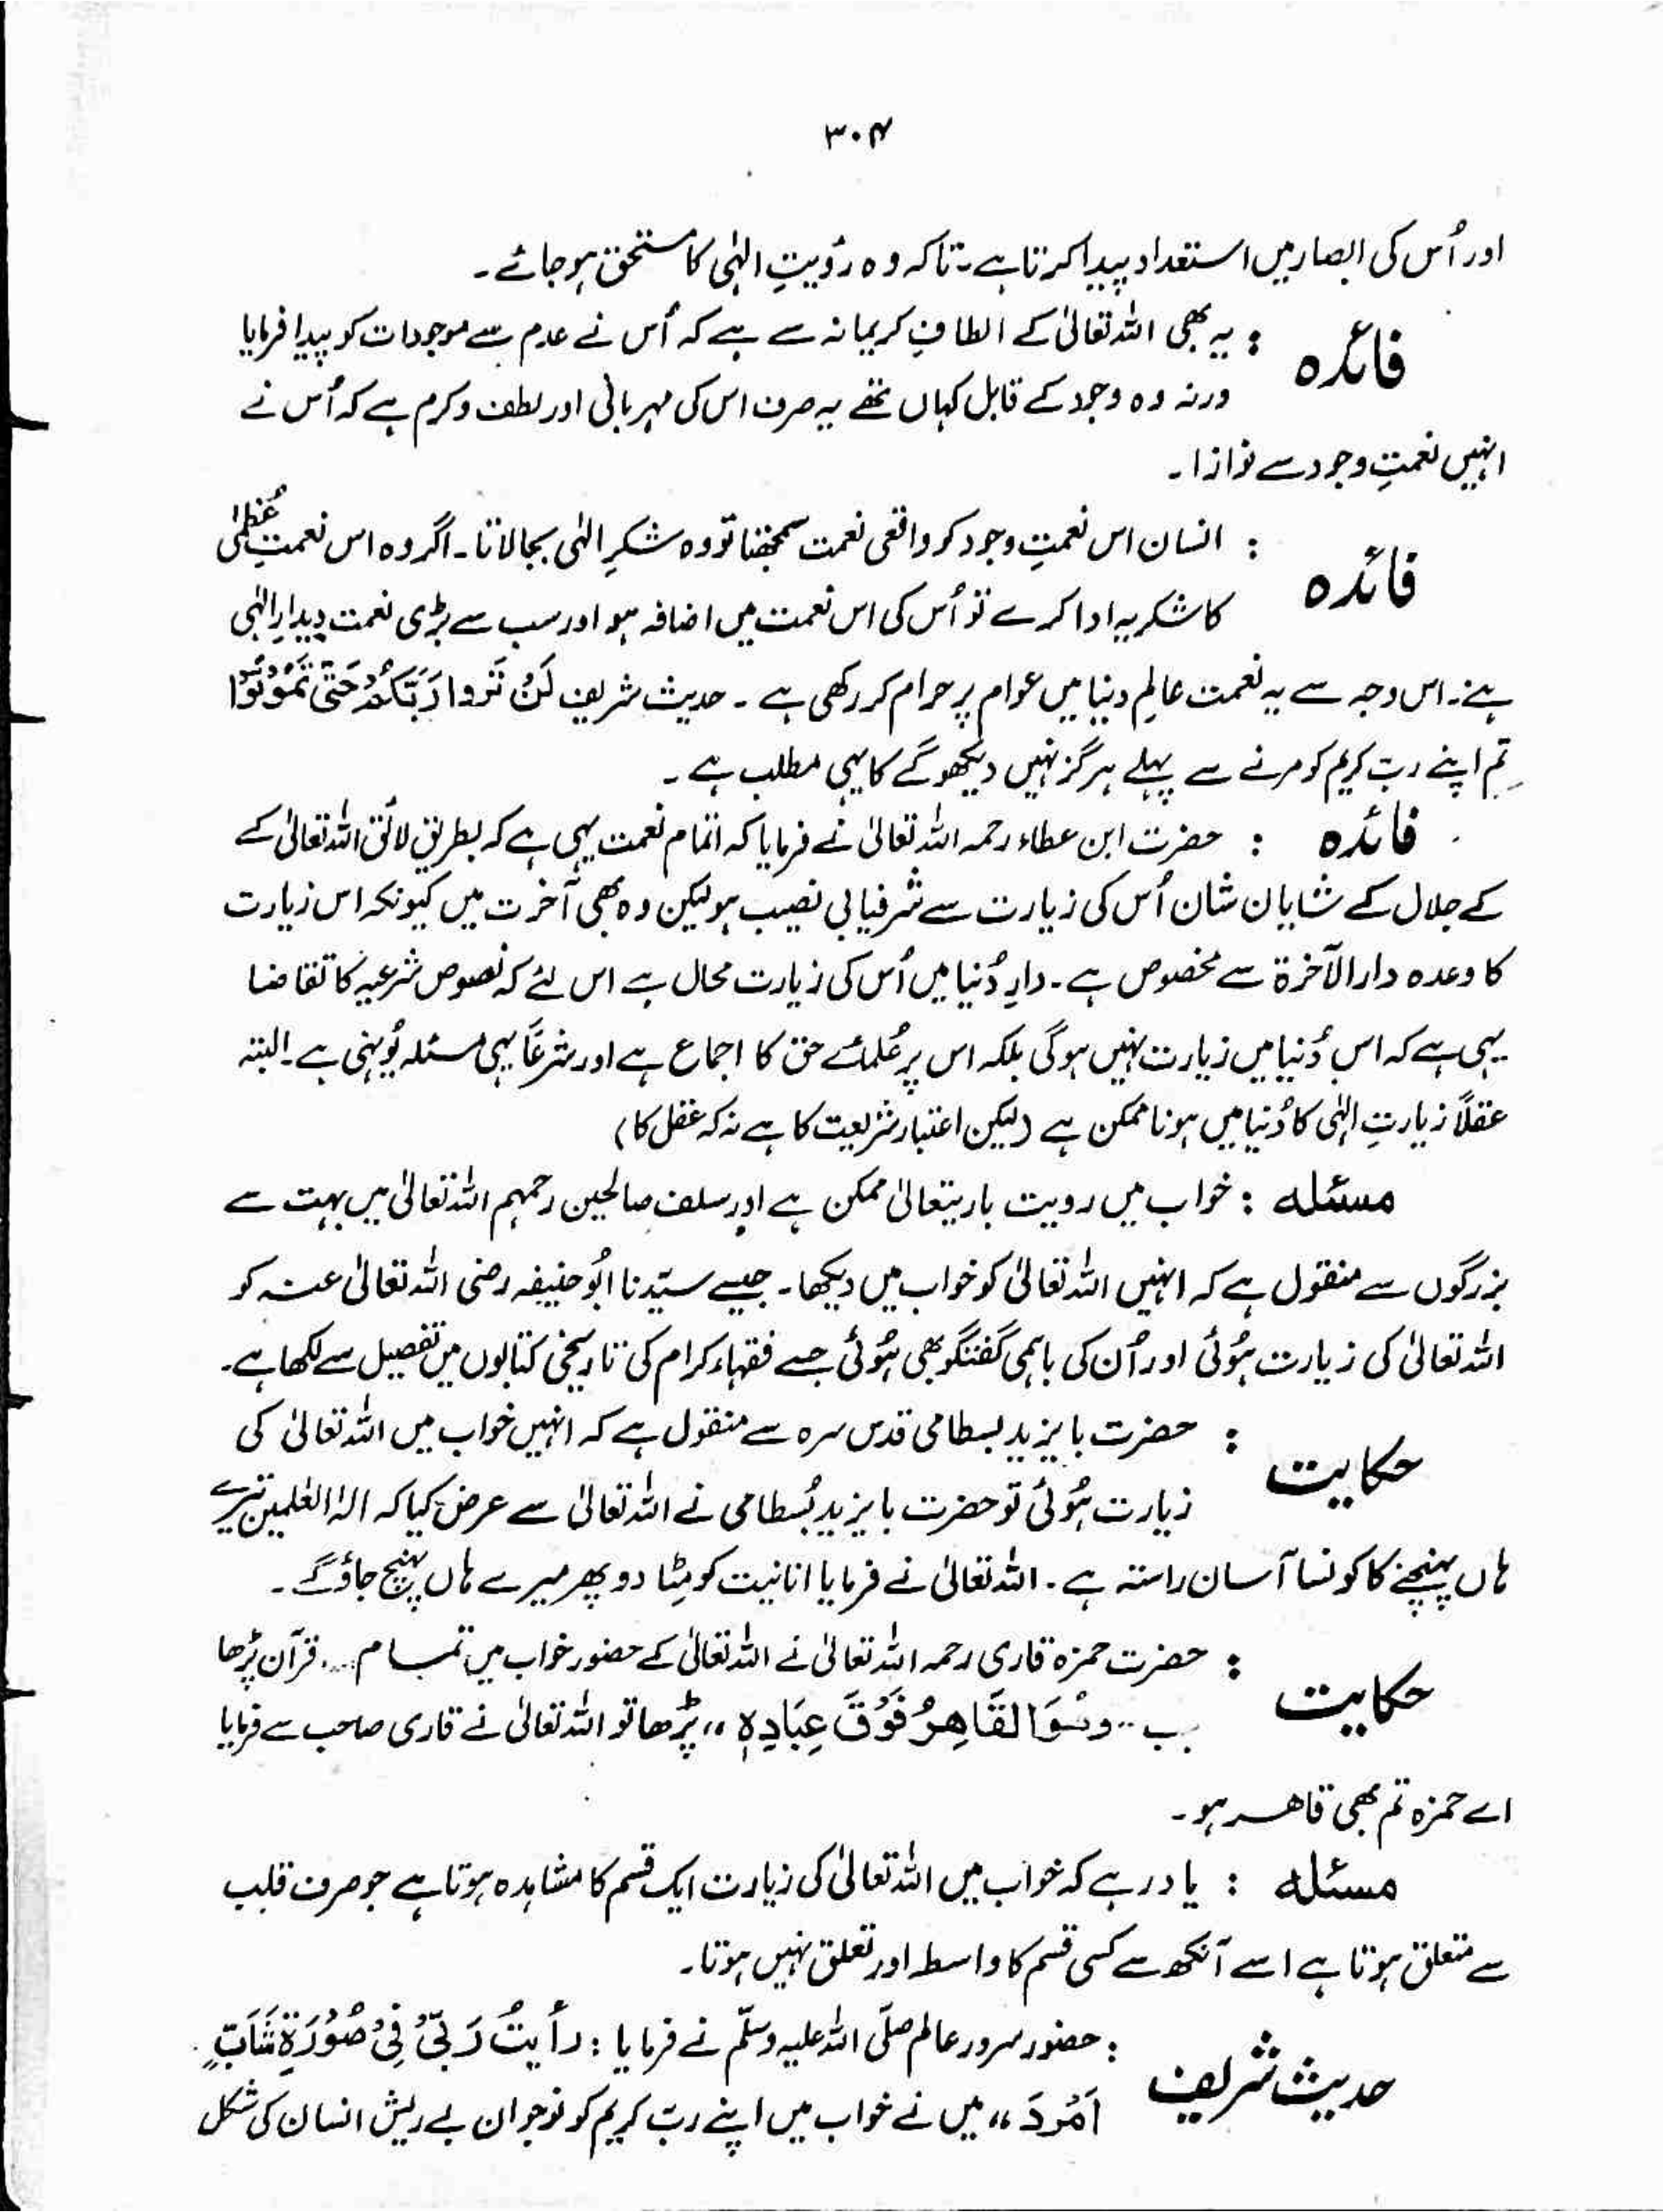 ۳۰۴
اور اُس کی ابصار میں استعداد پیدا کرتا ہے۔ تاکہ وہ رؤیتِ الہٰی کا مستحق ہو جائے۔
فائدہ : یہ بھی اللہ تعالیٰ کے الطافِ کریمانہ سے ہے کہ اُس نے عدم سے موجودات کو پیدا فرمایا
ورنہ وہ وجود کے قابل کہاں تھے یہ صرف اس کی مہربانی اور لطف و کرم ہے کہ اُس نے
انہیں نعمتِ وجود سے نوازا۔
فائدہ : انسان اس نعمتِ وجود کو واقعی نعمت سمجھتا تو وہ شکرِ الہٰی بجا لاتا۔ اگر وہ اس نعمتِ عُظمٰی
کا شکریہ ادا کرے تو اُس کی اس نعمت میں اضافہ ہو اور سب سے بڑی نعمت دیدارِ الہٰی
ہے۔ اس وجہ سے یہ نعمت عالمِ دنیا میں عوام پر حرام کر رکھی ہے ۔ حدیث شریف لَنْ تَرَوا رَبَّكُمْ حَتّٰى تَمُوْتُوْا
تم اپنے ربّ کریم کو مرنے سے پہلے ہرگز نہیں دیکھو گے کا یہی مطلب ہے ۔
فائدہ : حضرت ابن عطاء رحمہ اللہ تعالیٰ نے فرمایا کہ اتمام نعمت یہی ہے کہ بطریق لائق اللہ تعالیٰ کے
کے جلال کے شایان شان اُس کی زیارت سے شرفیابی نصیب ہو لیکن وہ بھی آخرت میں کیونکہ اس زیارت
کا وعدہ دارالآخرۃ سے مخصوص ہے ۔ دارِ دُنیا میں اُس کی زیارت محال ہے اس لئے کہ نصوص شرعیہ کا تقاضا
یہی ہے کہ اس دُنیا میں زیارت نہیں ہوگی بلکہ اس پر عُلمائے حق کا اجماع ہے اور شرعاً یہی مسئلہ یُونہی ہے۔ البتہ
عقلاً زیارتِ الہٰی کا دُنیا میں ہونا ممکن ہے (لیکن اعتبار شریعت کا ہے نہ کہ عقل کا)
مسئلہ : خواب میں رویت باریتعالیٰ ممکن ہے اور سلف صالحین رحمہم اللہ تعالیٰ میں بہت سے
بزرگوں سے منقول ہے کہ انہیں اللہ تعالیٰ کو خواب میں دیکھا۔ جیسے سیّدنا ابُو حنیفہ رضی اللہ تعالیٰ عنہ کو
اللہ تعالیٰ کی زیارت ہُوئی اور اُن کی باہمی گفتگو بھی ہُوئی جسے فقہاء کرام کی تاریخی کتابوں میں تفصیل سے لکھا ہے۔
حکایت : حضرت بایزید بسطامی قدس سرہ سے منقول ہے کہ انہیں خواب میں اللہ تعالیٰ کی
زیارت ہُوئی تو حضرت بایزید بُسطامی نے اللہ تعالیٰ سے عرض کیا کہ الہٰ العٰلمین تیرے
ہاں پہنچنے کا کونسا آسان راستہ ہے ۔ اللہ تعالیٰ نے فرمایا انانیت کو مِٹا دو پھر میرے ہاں پہنچ جاؤ گے ۔
حکایت : حضرت حمزہ قاری رحمہ اللہ تعالیٰ نے اللہ تعالیٰ کے حضور خواب میں تمام .... قرآن پڑھا
وَهُوَالْقَاهِرُ فَوْقَ عِبَادِهٖ ،، پڑھا تو اللہ تعالیٰ نے قاری صاحب سے فرمایا
اے حمزہ تم بھی قاھر ہو ۔
مسئلہ : یاد رہے کہ خواب میں اللہ تعالیٰ کی زیارت ایک قسم کا مشاہدہ ہوتا ہے جو صرف قلب
سے متعلق ہوتا ہے اسے آنکھ سے کسی قسم کا واسطہ اور تعلق نہیں ہوتا۔
حدیث شریف : حضور سرور عالم صلّی اللہ علیہ وسلّم نے فرمایا : رأیتُ رَبِّیْ فِیْ صُوْرَةِ شَابٍّ
اَمْرَدَ ،، میں نے خواب میں اپنے ربّ کریم کو نوجوان بے ریش انسان کی شکل